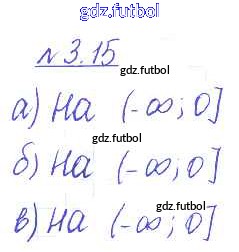 gdz.futbol
№3.15
gdz.futbol
а) на (-∞; 0]
gdz.futbol
б) на (-∞; 0]
gdz.futbol
в) на (-∞; 0]
gdz.futbol